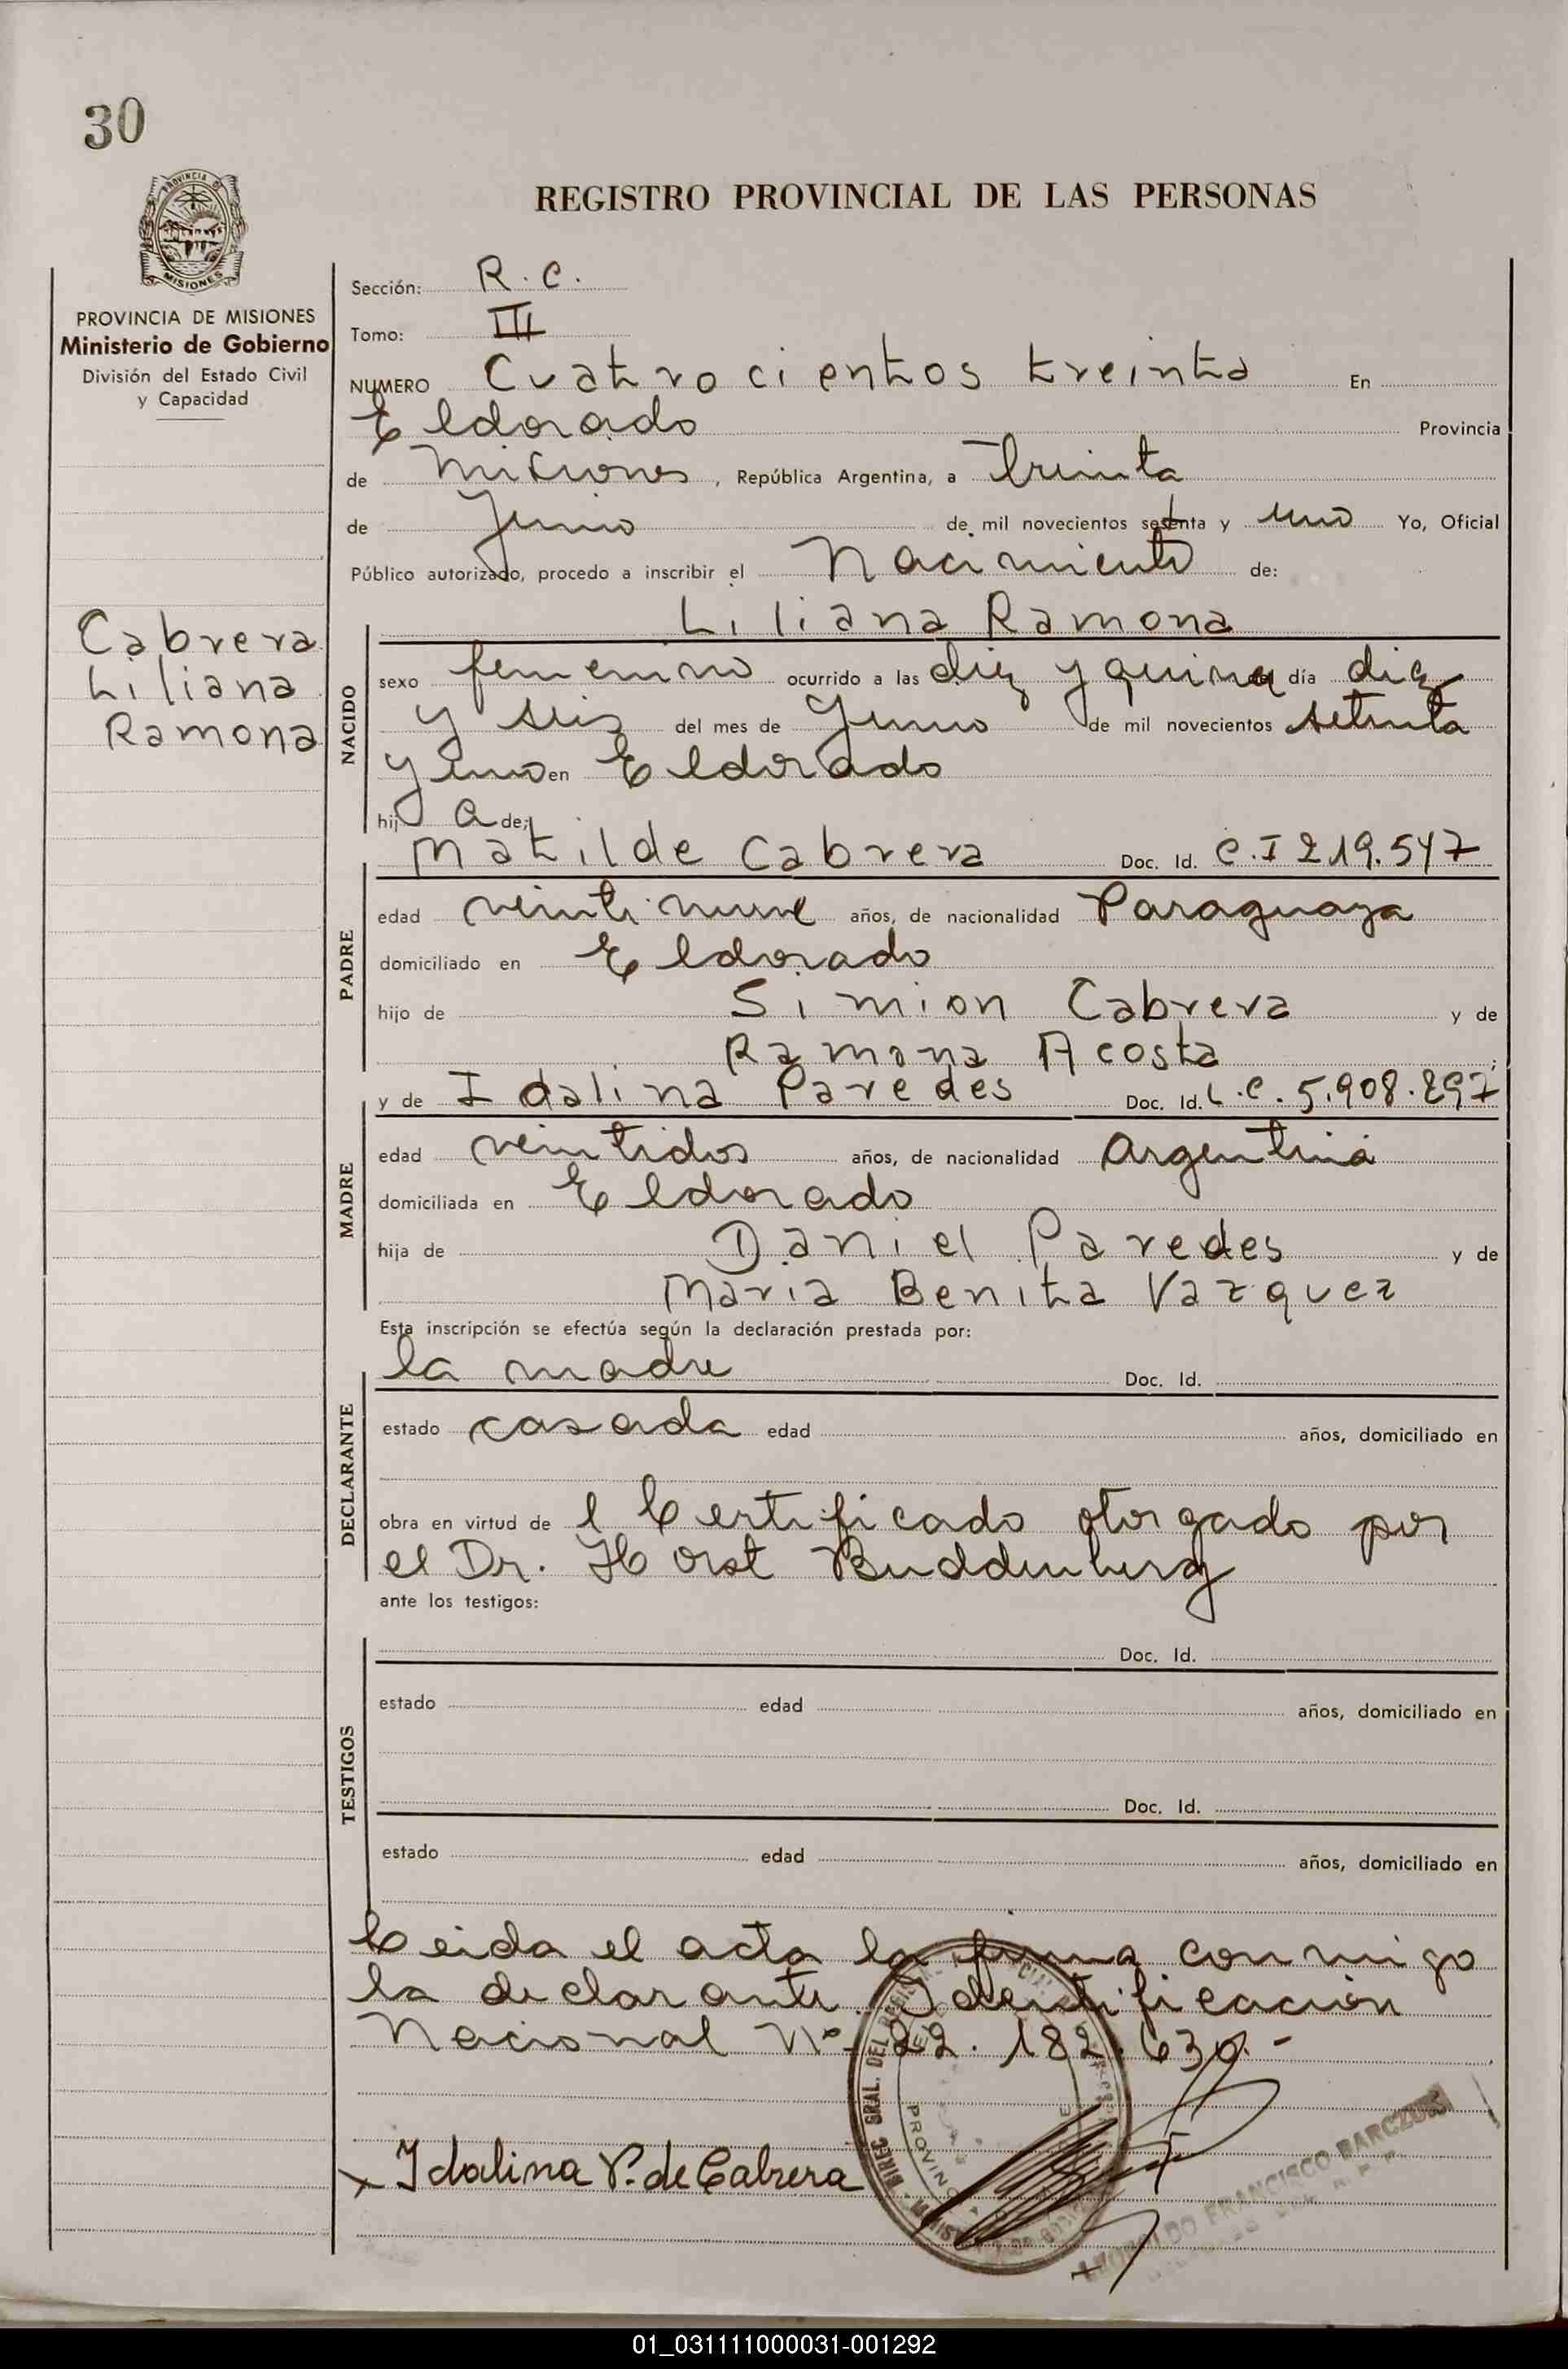 30
PROVINCIA DE
MISIONES
REGISTRO PROVINCIAL DE LAS PERSONAS
PROVINCIA DE MISIONES
Ministerio de Gobierno
División del Estado Civil
y Capacidad
Sección: R. C.
Tomo: III
NUMERO Cuatrocientos treinta En
Eldorado Provincia
de Misiones, República Argentina, a Treinta
de Junio de mil novecientos setenta y uno Yo, Oficial
Público autorizado, procedo a inscribir el Nacimiento de:
Cabrera
Liliana
Ramona
Liliana Ramona
NACIDO
sexo femenino ocurrido a las diez y quince día diez
y seis del mes de Junio de mil novecientos setenta
y uno en Eldorado
hij a de:
Matilde Cabrera Doc. Id. C.I 219.547
PADRE
edad veintinueve años, de nacionalidad Paraguaya
domiciliado en Eldorado
hijo de Simion Cabrera y de
Ramona Acosta;
y de Idalina Paredes Doc. Id. L.C. 5.908.297
MADRE
edad veintidos años, de nacionalidad Argentina
domiciliada en Eldorado
hija de Daniel Paredes y de
Maria Benita Vazquez
Esta inscripción se efectúa según la declaración prestada por:
la madre Doc. Id.
DECLARANTE
estado casada edad años, domiciliado en
obra en virtud de l Certificado otorgado por
el Dr. Horst Buddenberg
ante los testigos:
Doc. Id.
TESTIGOS
estado edad años, domiciliado en
Doc. Id.
estado edad años, domiciliado en
Leida el acta la firma conmigo
la declarante. Identificación
Nacional Nº 22.182.630.-
x Idalina P. de Cabrera
FRANCISCO BARCZUK
01_031111000031-001292